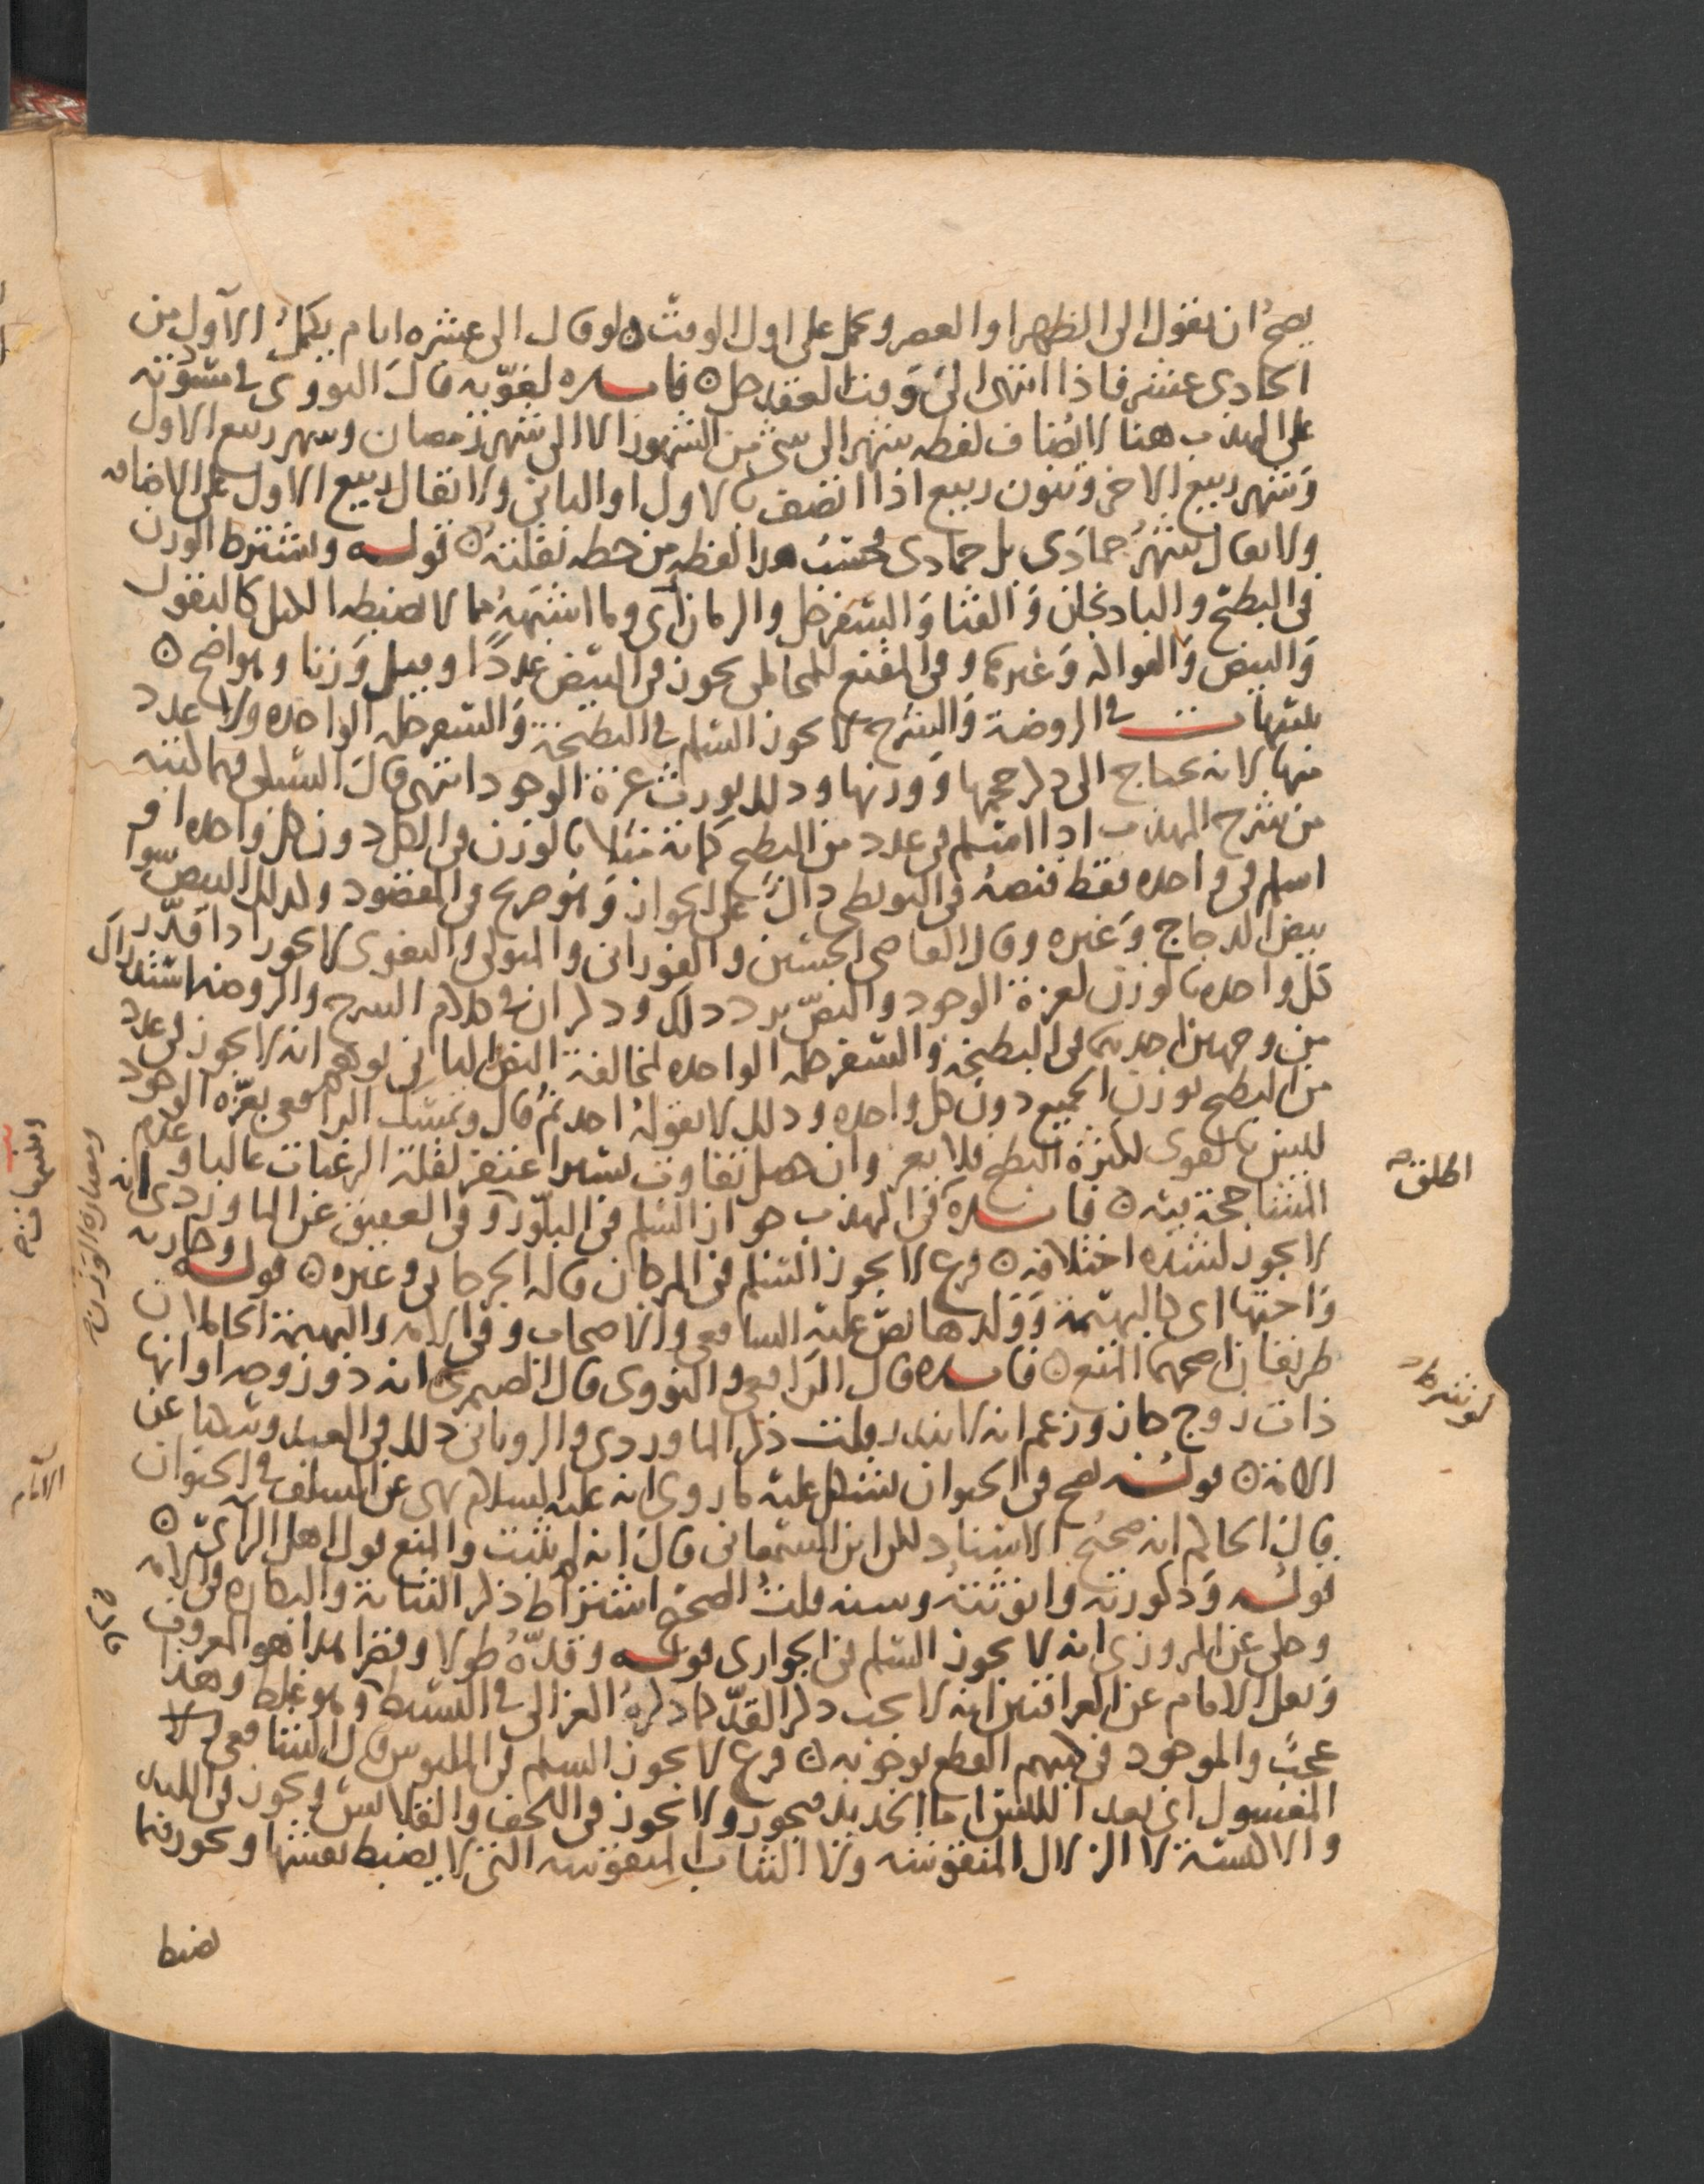 يصح ان يقول الى الظهر او العصر ويحمل على اول الوقت ولو قال الى عشره ايام يكمل الاول من
الحادي عشر فاذا انتهى الى وقت العقد حل فايده لغويه قال النووي في مسودته
على المهذب هنا لا يضاف لفظه شهر الى شي من الشهور الا الى شهر رمضان وشهر ربيع الاول
وشهر ربيع الاخر وينون ربيع اذا اتصف بالاول او الثاني ولا يقال ربيع الاول على الاضافه
ولا يقال شهر جمادى بل جمادى فحسب هذا لفظه من خطه نقلته قوله ويشترط الوزن
في البطيخ والباذنجان والقثا والسفرجل والرمان اي وما اشبهه مما لا يضبطه الكيل كالبقول
والبيض والفواكه وغيرها وفي المقنع للمحاملي يجوز في البيض عددا وقيل وزنا وهو واضح
تنبيهات في الروضة والشرح لا يجوز السلم في البطيخة والسفرجله الواحده ولا عدد
منها لانه يحتاج الى ذكر حجمها ووزنها وذلك يورث عزة الوجود انتهى قال السبكي فيما كتبه
من شرح المهذب اذا اسلم في عدد من البطيخ كمائة مثلا بالوزن في الكل دون كل واحده او
اسلم في واحده فقط فنصه في البويطي دال على الجواز وهو صريح في المقصود وكذلك البيض سوا
بيض الدجاج وغيره وقال القاضي الحسين والفوراني والمتولي والبغوي لا يجوز اذا قدر
كل واحده بالوزن لعزة الوجود والنص يرد ذلك وذكر ان في كلام الشرح والروضه استدراك
من وجهين احدهما في البطيخة والسفرجله الواحده لمخالفة النص الثاني يوهم انه لا يجوز في عدد
من البطيخ بوزن الجميع دون كل واحده وذلك لا يقوله احد ثم قال وتمسك الرافعي بعزه الوجود
ليس بالقوي لكثرة البطيخ فلا يعز وان حصل تفاوت يسير اغتفر لقلة الرغبات غالبا وكلام
الشافعي حجة بينه فايده في المهذب جواز السلم في البلور وفي العقيق عن الماوردي انه
لا يجوز لشده اختلافه فرع لا يجوز السلم في المرجان قاله الجرجاني وغيره قوله وجاريه
واختها اي كالبهيمة وولدها نص عليه الشافعي والاصحاب وفي الامه والبهيمة الحاملان
طريقان اصحهما المنع فايده قال الرافعي والنووي قال الصيمري انه ذو زوجه او انها
ذات زوج جاز وزعم انه لا يندر قلت ذكر الماوردي والروياني ذلك في العبد وسكتا عن
الامة قوله يصح في الحيوان يشكل عليه ما روي انه عليه السلام نهى عن السلف في الحيوان
قال الحاكم انه صحيح الاسناد لكن ابن السمعاني قال انه لم يثبت والمنع قول اهل الراي
قوله وذكورته وانوثته وسنه قلت الصحيح اشتراط ذكر الثيابة والبكاره في الامه
وحكي عن المروزي انه لا يجوز السلم في الجواري قوله وقده طولا وقصرا هذا هو المعروف
ونقل الامام عن العراقيين انه لا يجب ذكر القد كما ذكره الغزالي في البسيط وهو غلط وهذا
عجب والموجود في كتبهم القطع بوجوبه فرع لا يجوز السلم في الملبوس قال الشافعي لا
المغسول اي بعد اللبس اما الجديد فيجوز ولا يجوز في الخف والقلانس ويجوز في اللبد
والاكسية لا الزلالي المنقوشه ولا الثياب المنقوشه التي لا يضبط نقشها ويجوز فيما
يضبط
اطلق
لو شرط
قال